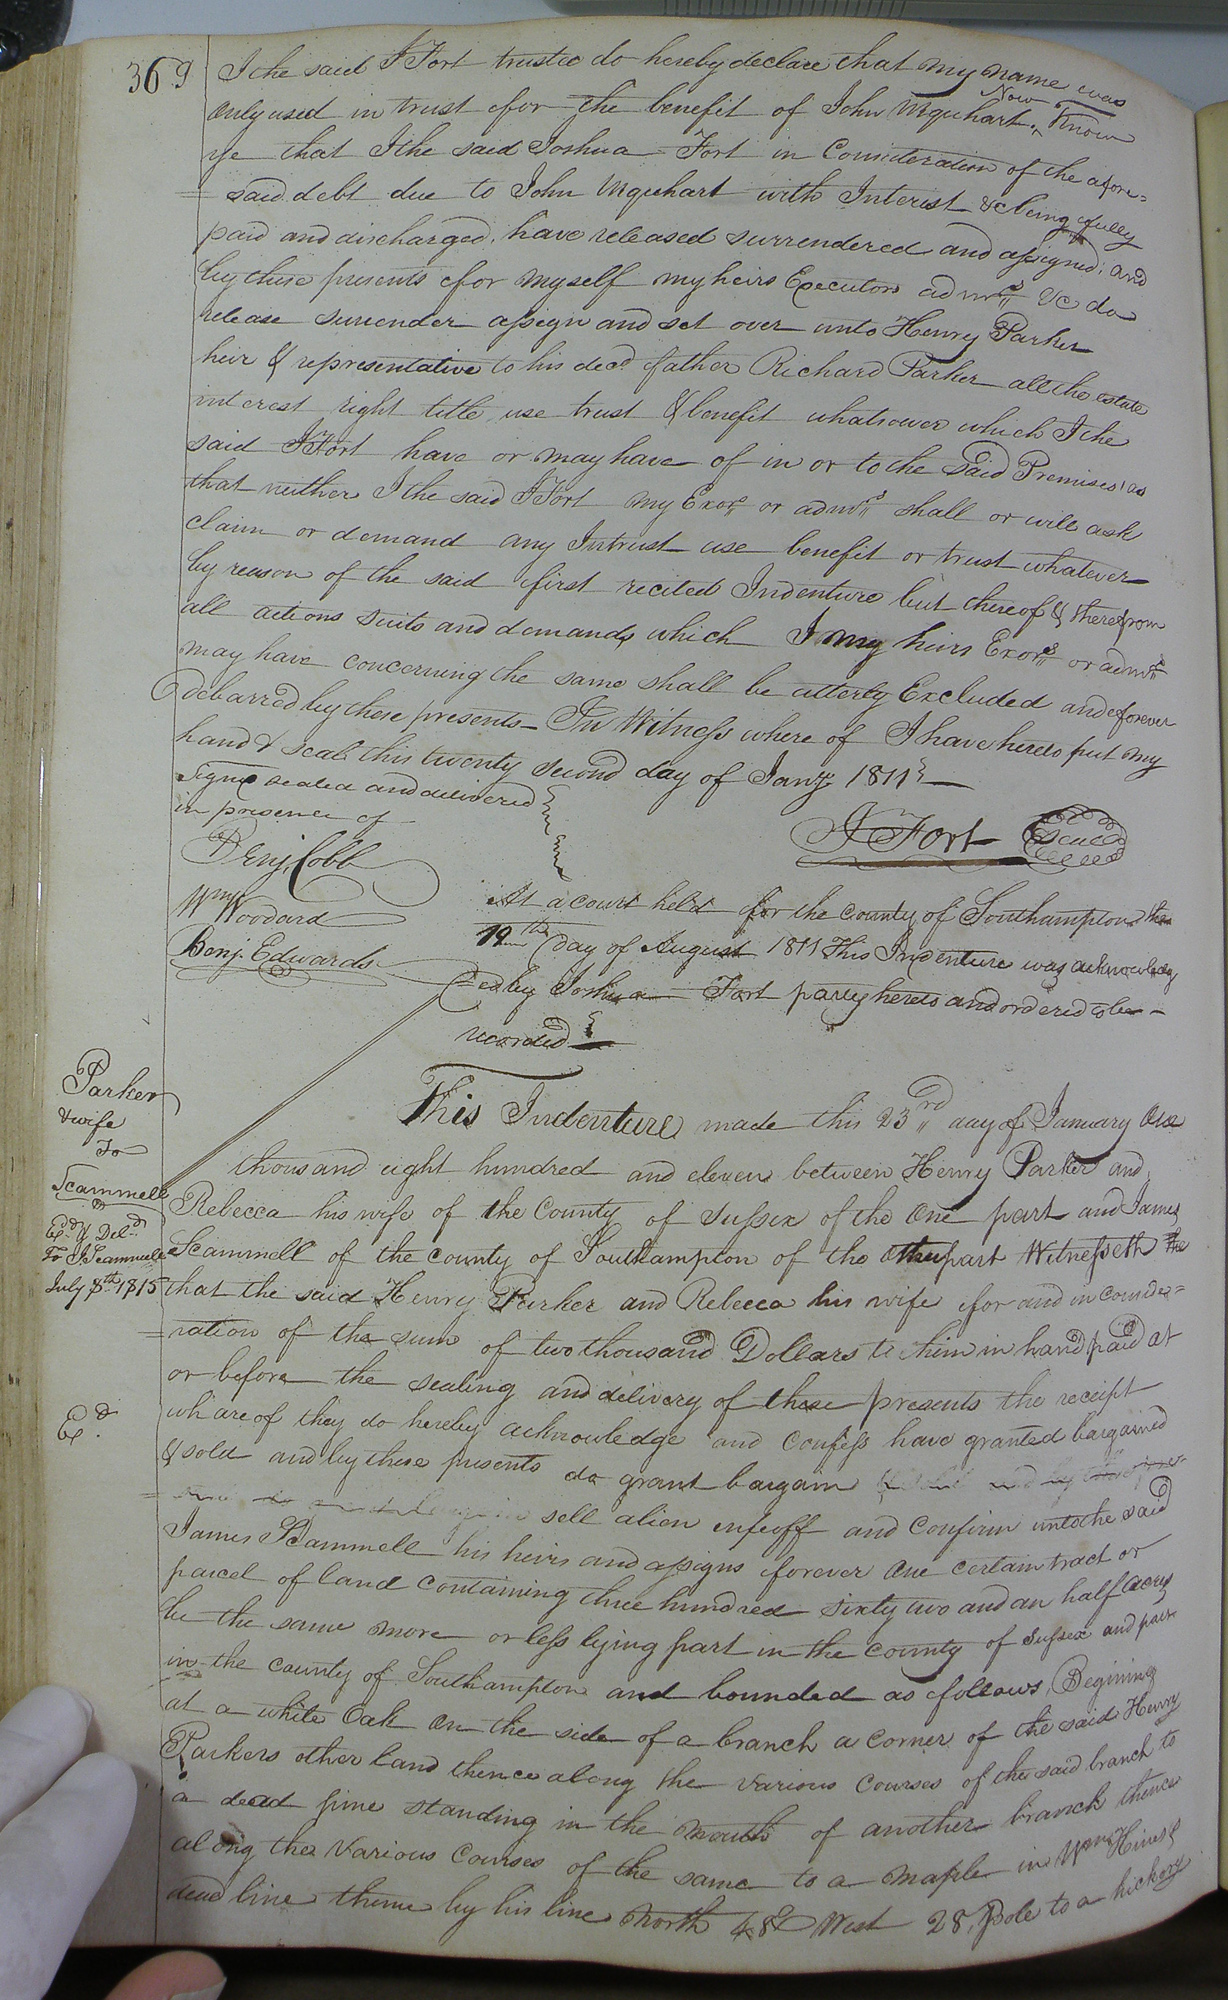 369
I the said J Fort trustee do hereby declare that my name was
only used in trust for the benefit of John Urquhart. Now Know
ye that I the said Joshua Fort in Consideration of the afore-
= said debt due to John Urquhart with Interest &c being fully
paid and discharged, have released surrendered and assigned, and
by these presents for myself my heirs Executors admrs &c do
release surrender assign and set over unto Henry Parker
heir & representative to his decd father Richard Parker all the estate
interest right title, use trust & benefit whatsower which I the
said J Fort have or may have of in or to the said Premises, so
that neither I the said J Fort my Exors or admrs shall or will ask
claim or demand any Intrust use benefit or trust whatever
by reason of the said first recited Indenture but thereof & therefrom
all actions suits and demands, which I my heirs Exors or admrs
may have concerning the same shall be utterly Excluded and forever
debarred by these presents - In Witness where of I have hereto put my
hand & seal this twenty second day of Jany 1811 -
Signed sealed and delivered
in presence of
J Fort Seal
Benj. Cobb
Wm Woodard
Benj. Edwards
At a court held for the county of Southampton the
19th day of August 1811 This Indenture was acknowledg
= ed by Joshua Fort party hereto and ordered to be -
recorded
Parker
& wife
To
Scammell
Exd & Deld
To J. Scammell
July 8th 1815
Exd
This Indenture made this 23rd day of January One
thousand eight hundred and eleven between Henry Parker and
Rebecca his wife of the County of Sussex of the One part and James
Scammell of the county of Southampton of the other part Witnesseth the
that the said Henry Parker and Rebecca his wife for and in conside=
= ration of the sum of two thousand Dollars to him in hand paid at
or before the sealing and delivery of these presents the receipt
whareof they do hereby acknowledge and confess have granted bargained
& sold and by these presents do grant bargain
sell alien enfeoff and confirm unto the said
James Scammell his heirs and assigns forever One certain tract or
parcel of land containing three hundred sixty two and an half acres
be the same more or less lying part in the county of Sussex and part
in the county of Southampton and bounded as follows, Begining
at a white Oak on the side of a branch a corner of the said Henry
Parkers other land thence along the various courses of the said branch to
a dead pine standing in the mouth of another branch thence
along the various courses of the same to a maple in Wm Hines
dead line thence by his line North 48° West 28, pole to a hickory